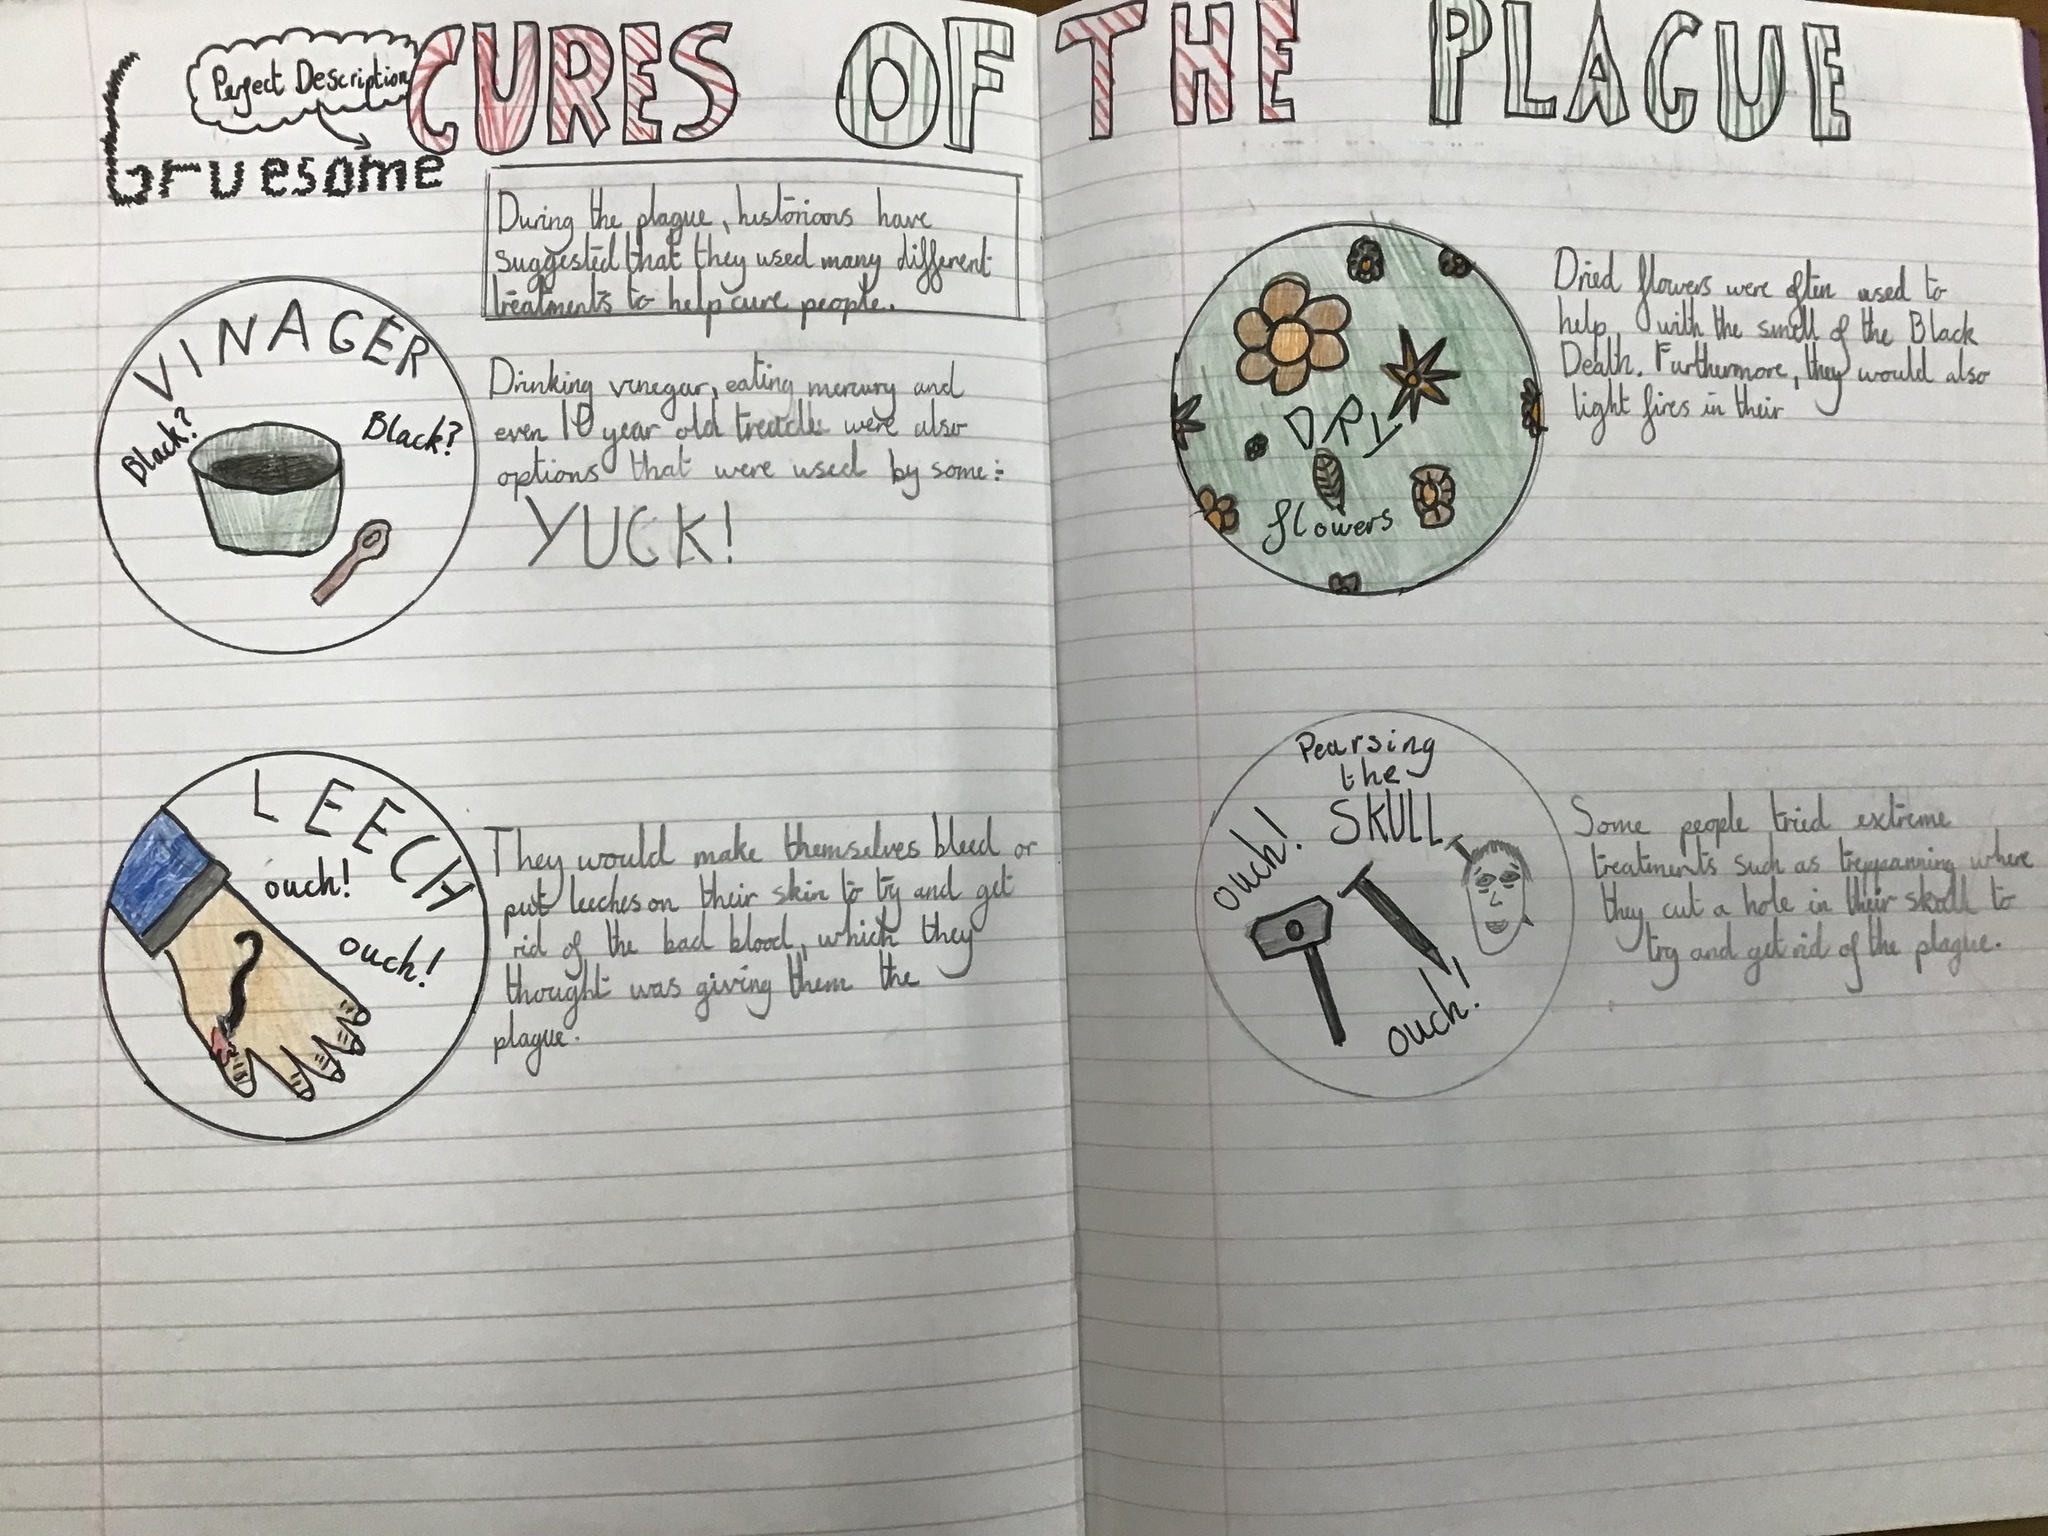 CURES OF THE PLAGUE
Perfect Description
Gruesome
During the plague, historians have
suggested that they used many different
treatments to help cure people.
VINAGER
Black?
Black?
Drinking vinegar, eating mercury and
even 10 year old treacle were also
options that were used by some:
YUCK!
LEECH
ouch!
ouch!
They would make themselves bleed or
put leeches on their skin to try and get
rid of the bad blood, which they
thought was giving them the
plague.
DRY
flowers
Dried flowers were often used to
help with the smell of the Black
Death. Furthermore, they would also
light fires in their
Pearsing
the
SKULL
ouch!
ouch!
Some people tried extreme
treatments such as where
they cut a hole in their skull to
try and get rid of the plague.